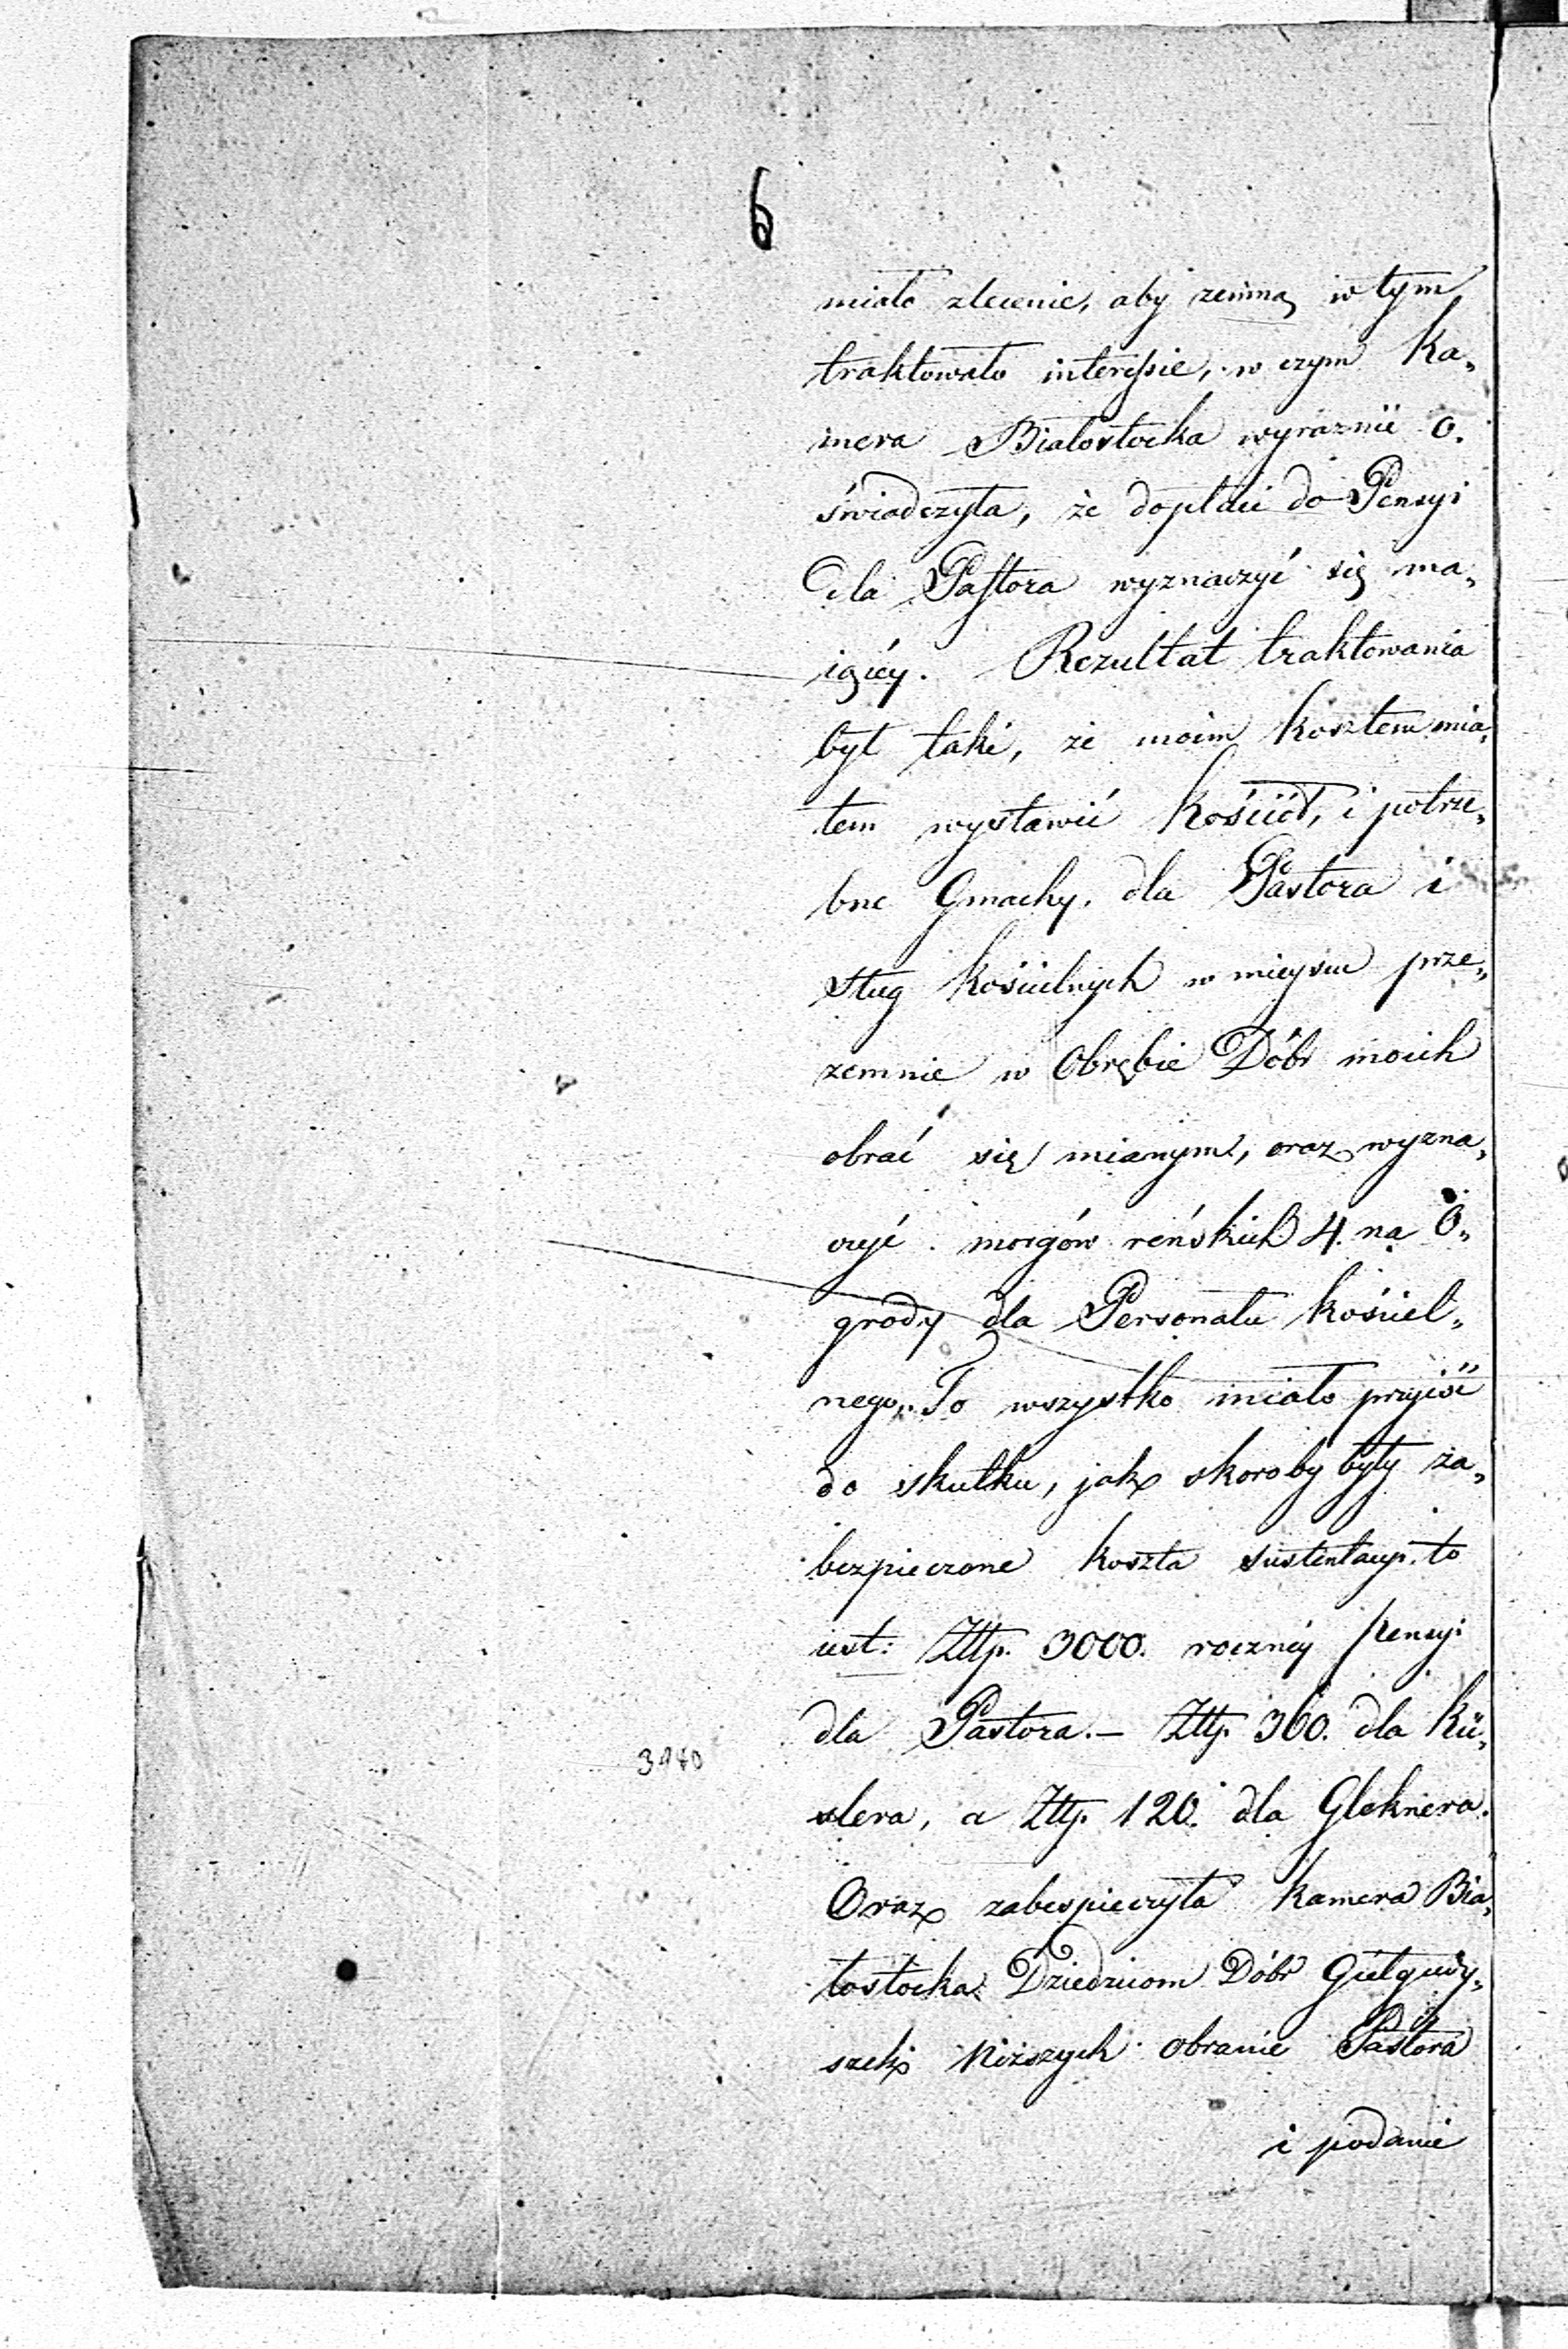 6
miało zlecenie, aby zemną w tym
traktowało interessie, w czym Ka„
mera Białostocka wyraznie o.
świadczyła, że dopłaci do Pensyi
dla Pastora wyznaczyć się ma„
iącéy. Rezultat traktowania
był taki, że moim kosztem mia„
łem wystawić Kościół, i potrze„
bne Gmachy, dla Pastora i
sług kościelnych w mieyscu prze„
zemnie w Obrębie Dóbr moich
obrać się mianym, oraz wyzna„
czyć morgów reńskich 4. na O„
grody dla Personału kościel„
nego„ To wszystko miało przyiść
do skutku, jak skoroby były za„
bezpieczone koszta sustentacyi. to
iest: Złłp. 3000. rocznéy pensyi
dla Pastora. — Złłp. 360. dla Kü„
3480
stera, a Złłp. 120. dla Gleknera.
Oraz zabespieczyła Kamera Bia„
łostocka Dziedzicom Dóbr Giełgudy„
szek Niższych obranie Pastora
i podanie